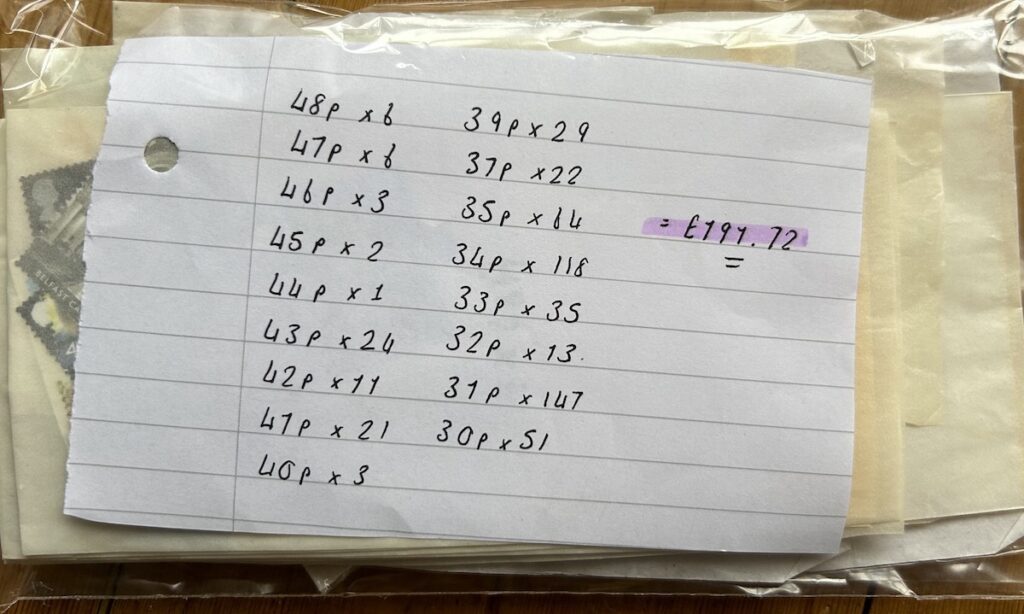 48p x 6 39p x 29
47p x 6 37p x 22
46p x 3 35p x 64 = £191.72
45p x 2 34p x 118
44p x 1 33p x 35
43p x 24 32p x 13.
42p x 11 31p x 147
41p x 21 30p x 51
40p x 3
BELFAST